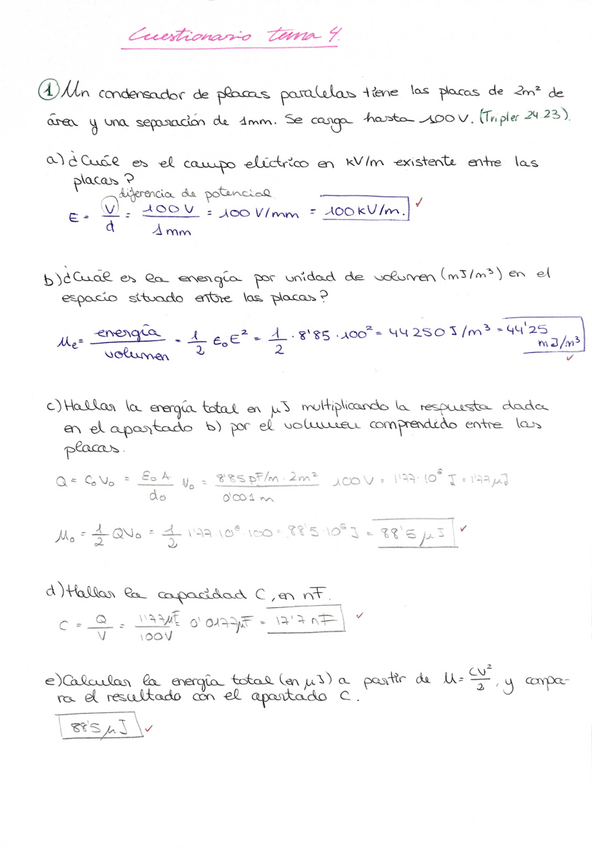 Cuestionario tema 4.
① Un condensador de placas paralelas tiene las placas de 2m² de
área y una separación de 1mm. Se carga hasta 100V. (Tripler 24.23).
a) ¿Cuál es el campo eléctrico en kV/m existente entre las
placas?
diferencia de potencial
E = V/d = 100V/1mm = 100 V/mm = 100kV/m. ✓
b) ¿Cuál es la energía por unidad de volumen (mJ/m³) en el
espacio situado entre las placas?
Ue = energía/volumen = 1/2 ε₀E² = 1/2 · 8'85 · 100² = 44250J/m³ = 44'25 mJ/m³ ✓
c) Hallar la energía total en μJ multiplicando la respuesta dada
en el apartado b) por el volumen comprendido entre las
placas.
Q = C₀V₀ = ε₀A/d₀ V₀ = 8'85pF/m · 2m²/0'001m 100V = 1'77·10⁶ J = 1'77μJ
U₀ = 1/2 QV₀ = 1/2 1'77 10⁶ · 100 = 88'5 · 10⁶ J = 88'5 μJ ✓
d) Hallar la capacidad C, en nF.
C = Q/V = 1'77μF/100V 0'0177μF = 17'7nF ✓
e) Calcular la energía total (en μJ) a partir de U = CV²/2, y compa-
ra el resultado con el apartado C.
88'5 μJ ✓